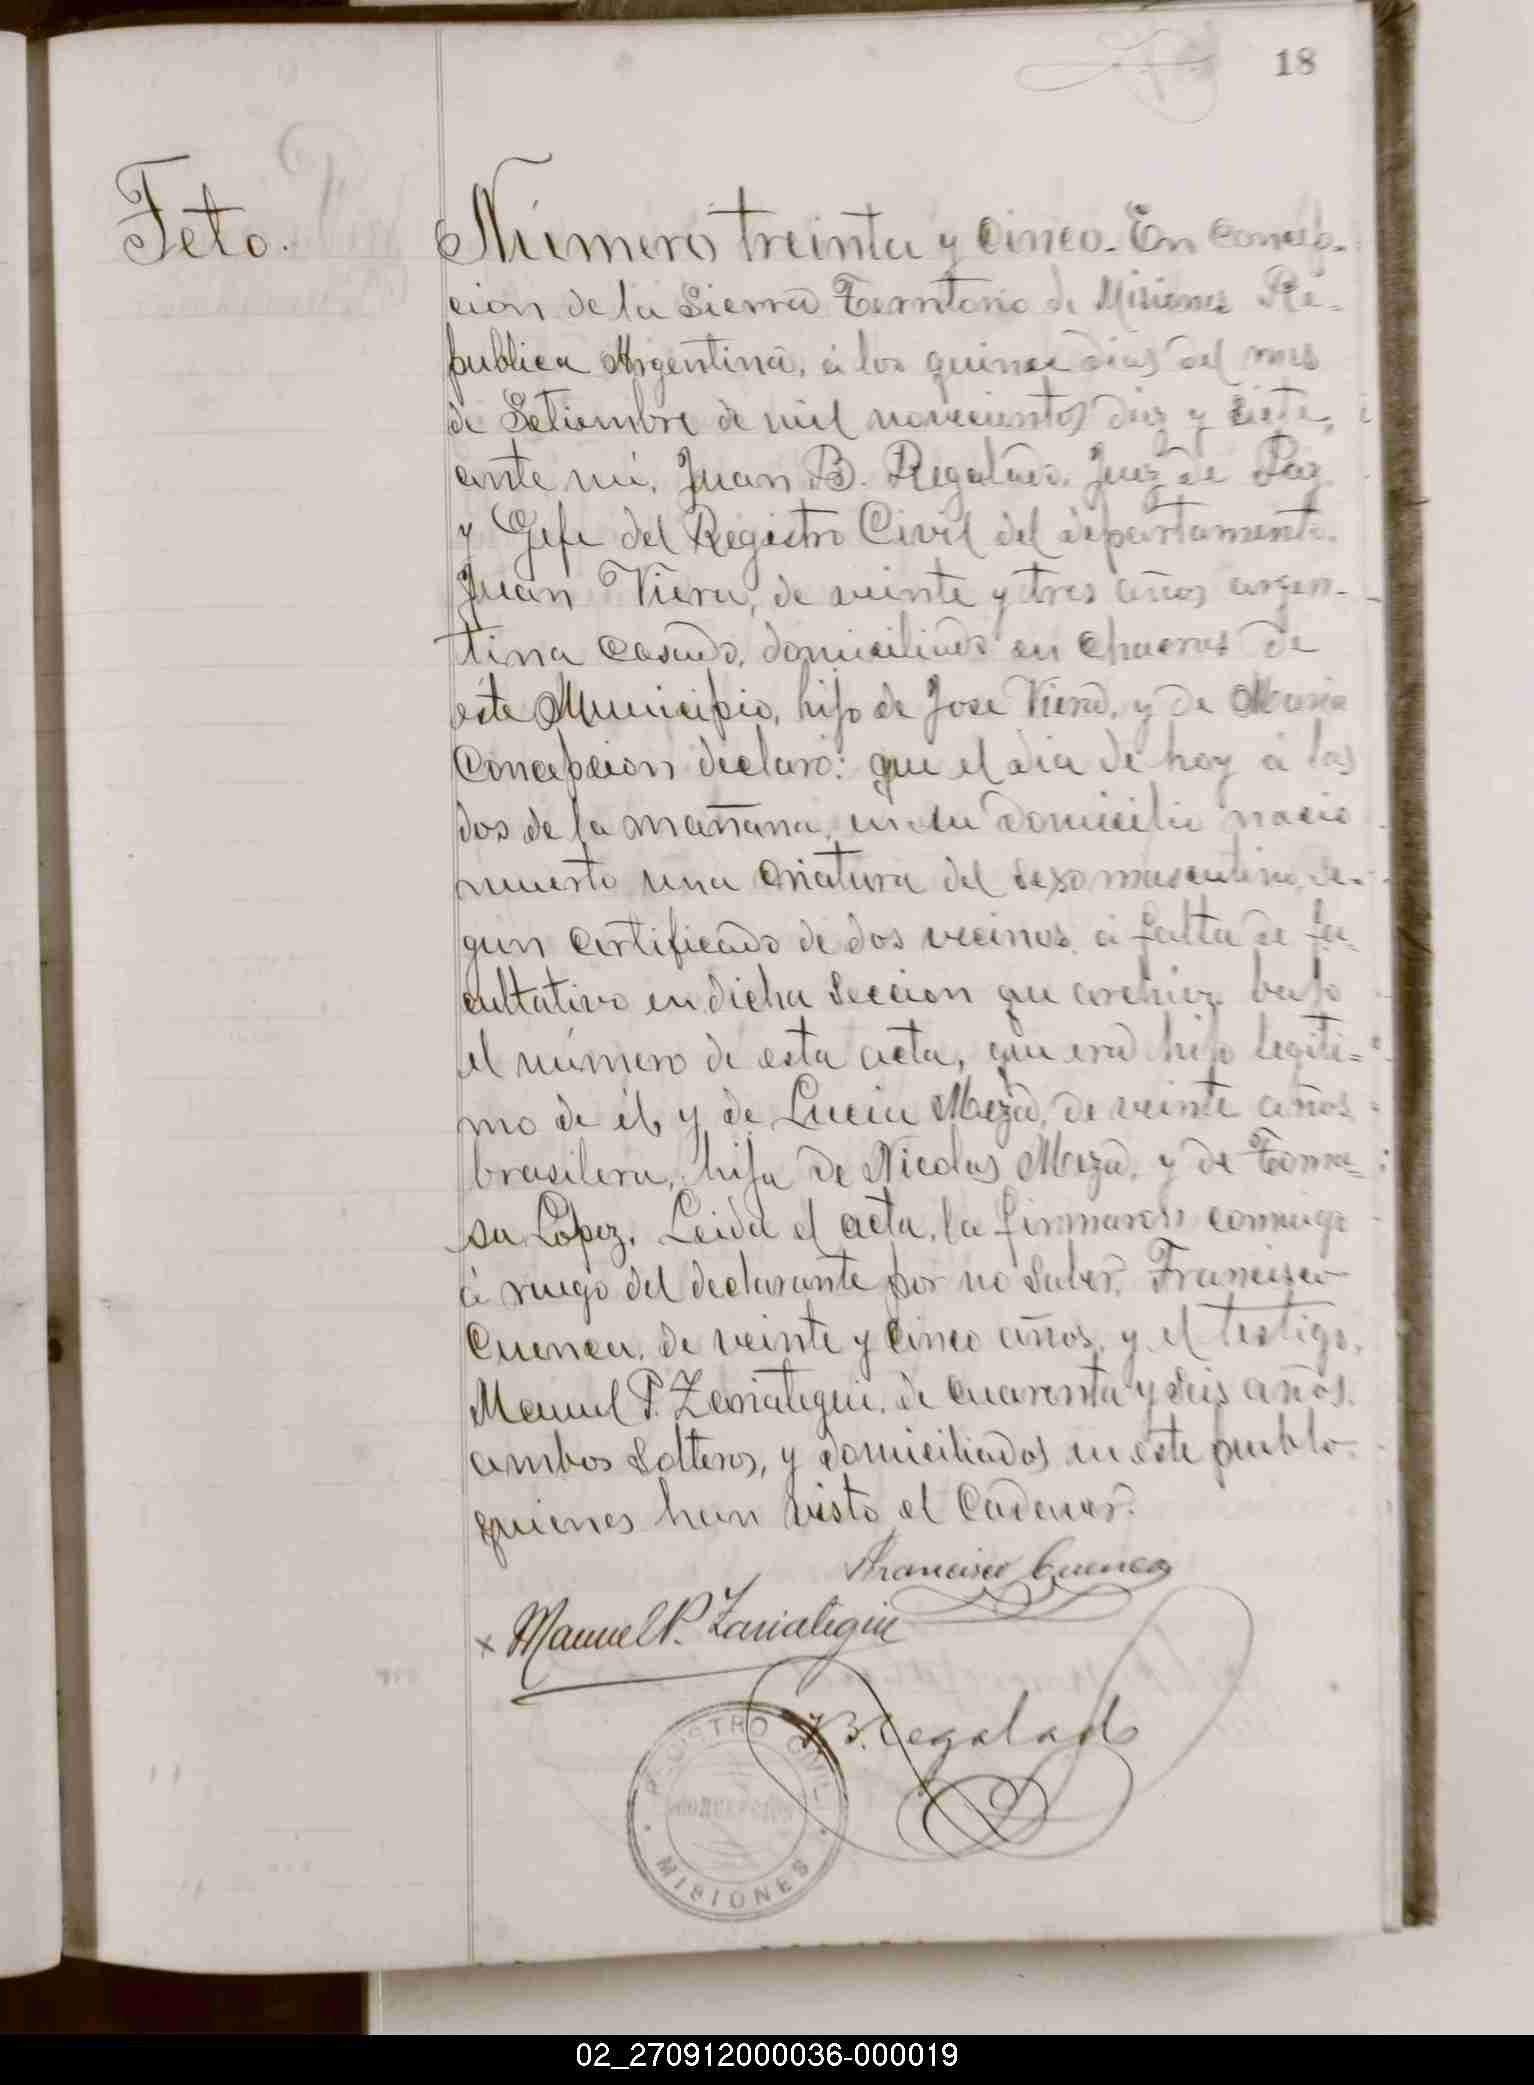 18
Feto.
Número treinta y cinco. En Concep-
cion de la Sierra Territorio de Misiones Re-
publica Argentina, á los quince dias del mes
de Setiembre de mil novecientos diez y siete,
ante mi, Juan B. Regalado, Juez de Paz
y Gefe del Registro Civil del departamento.
Juan Viera, de veinte y tres años argen-
tina casado, domiciliado en chacras de
éste Municipio, hijo de José Viera, y de Maria
Concepcion declaró: que el dia de hoy á las
dos de la mañana, en su domicilio nacio
muerto una criatura del sexo masculino, se-
gun certificado de dos vecinos á falta de fa-
cultativo en dicha Seccion que archivo bajo
el número de esta acta, que era hijo legiti-
mo de él y de Lucia Meza, de veinte años
brasilera, hija de Nicolas Meza, y de Toma-
sa Lopez. Leida el acta, la firmaron conmigo
á ruego del declarante por no saber, Francisco
Cuenca, de veinte y cinco años, y el testigo,
Manuel P. Zariategui, de cuarenta y seis años.
ambos solteros, y domiciliados en este pueblo
quienes han visto el cadaver.
Francisco Cuenca
x Manuel P. Zariategui
J B. Regalado
REGISTRO CIVIL
CONCEPCION
MISIONES
02_270912000036-000019